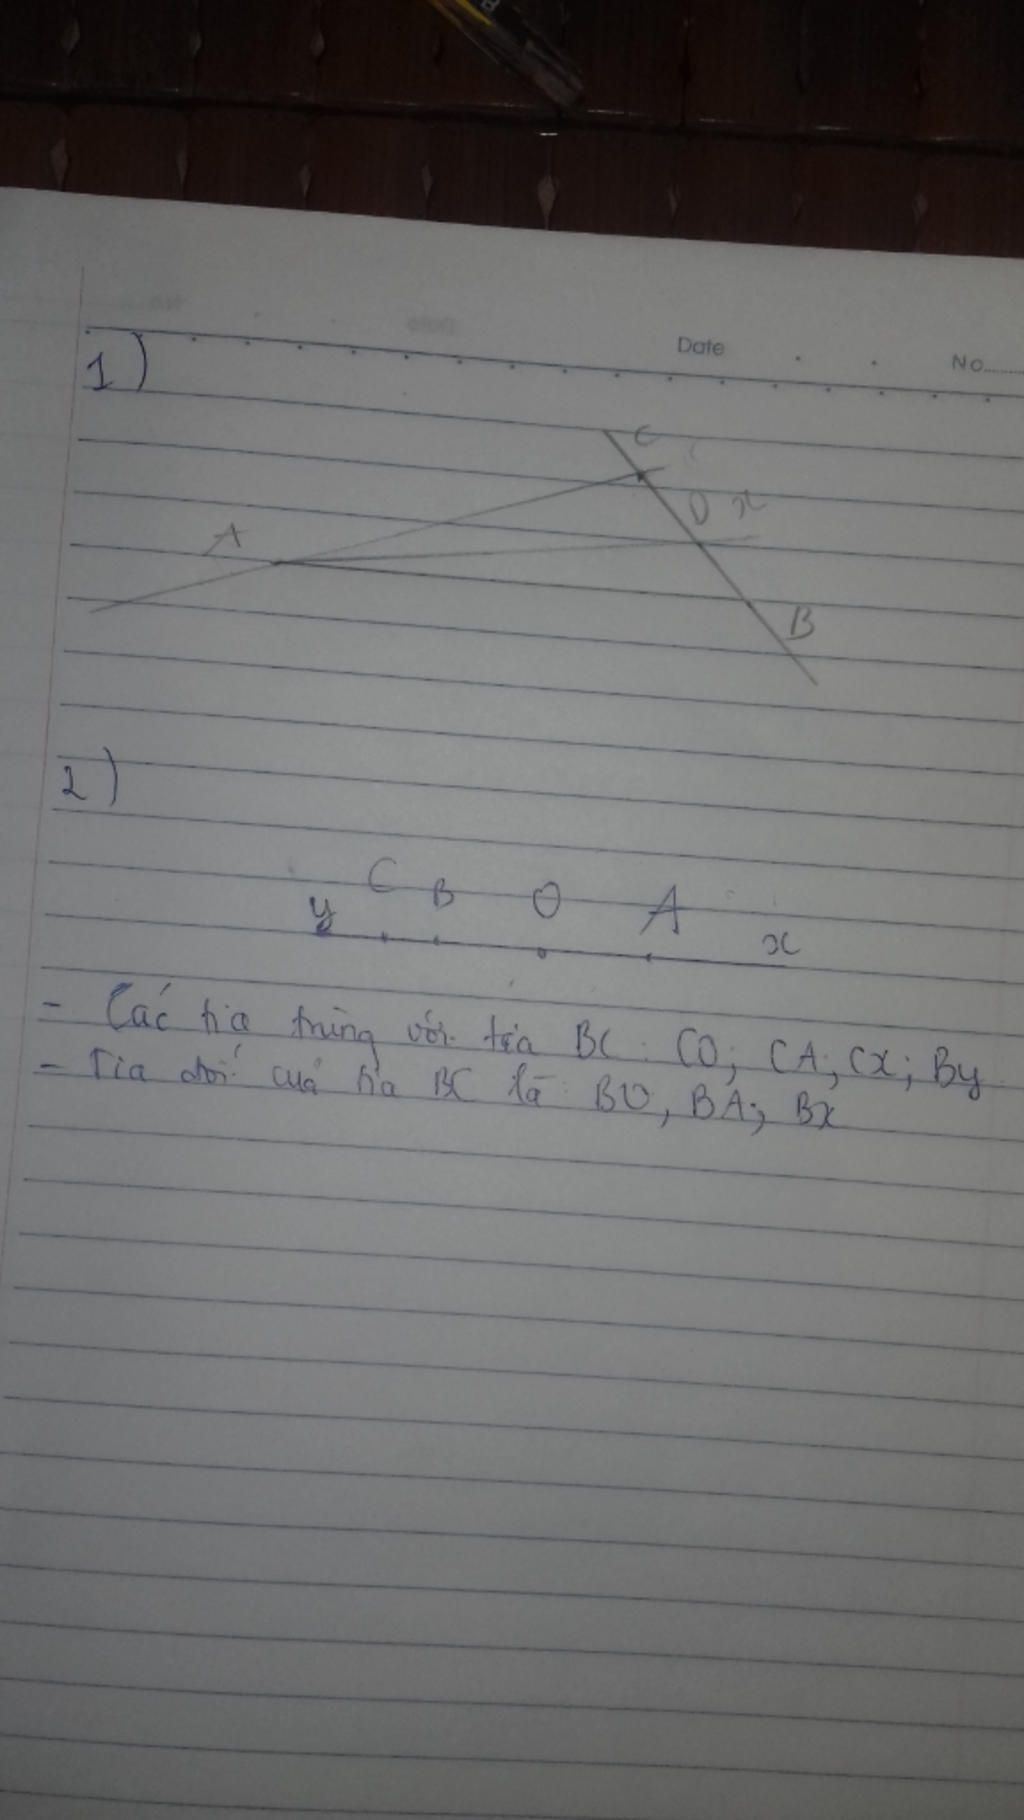 Date No........
1)
C
D x
A
B
2)
C B O A
y x
- Các tia trùng với tia BC : CO; CA; Cx; By
- Tia đối của tia BC là : BO, BA; Bx